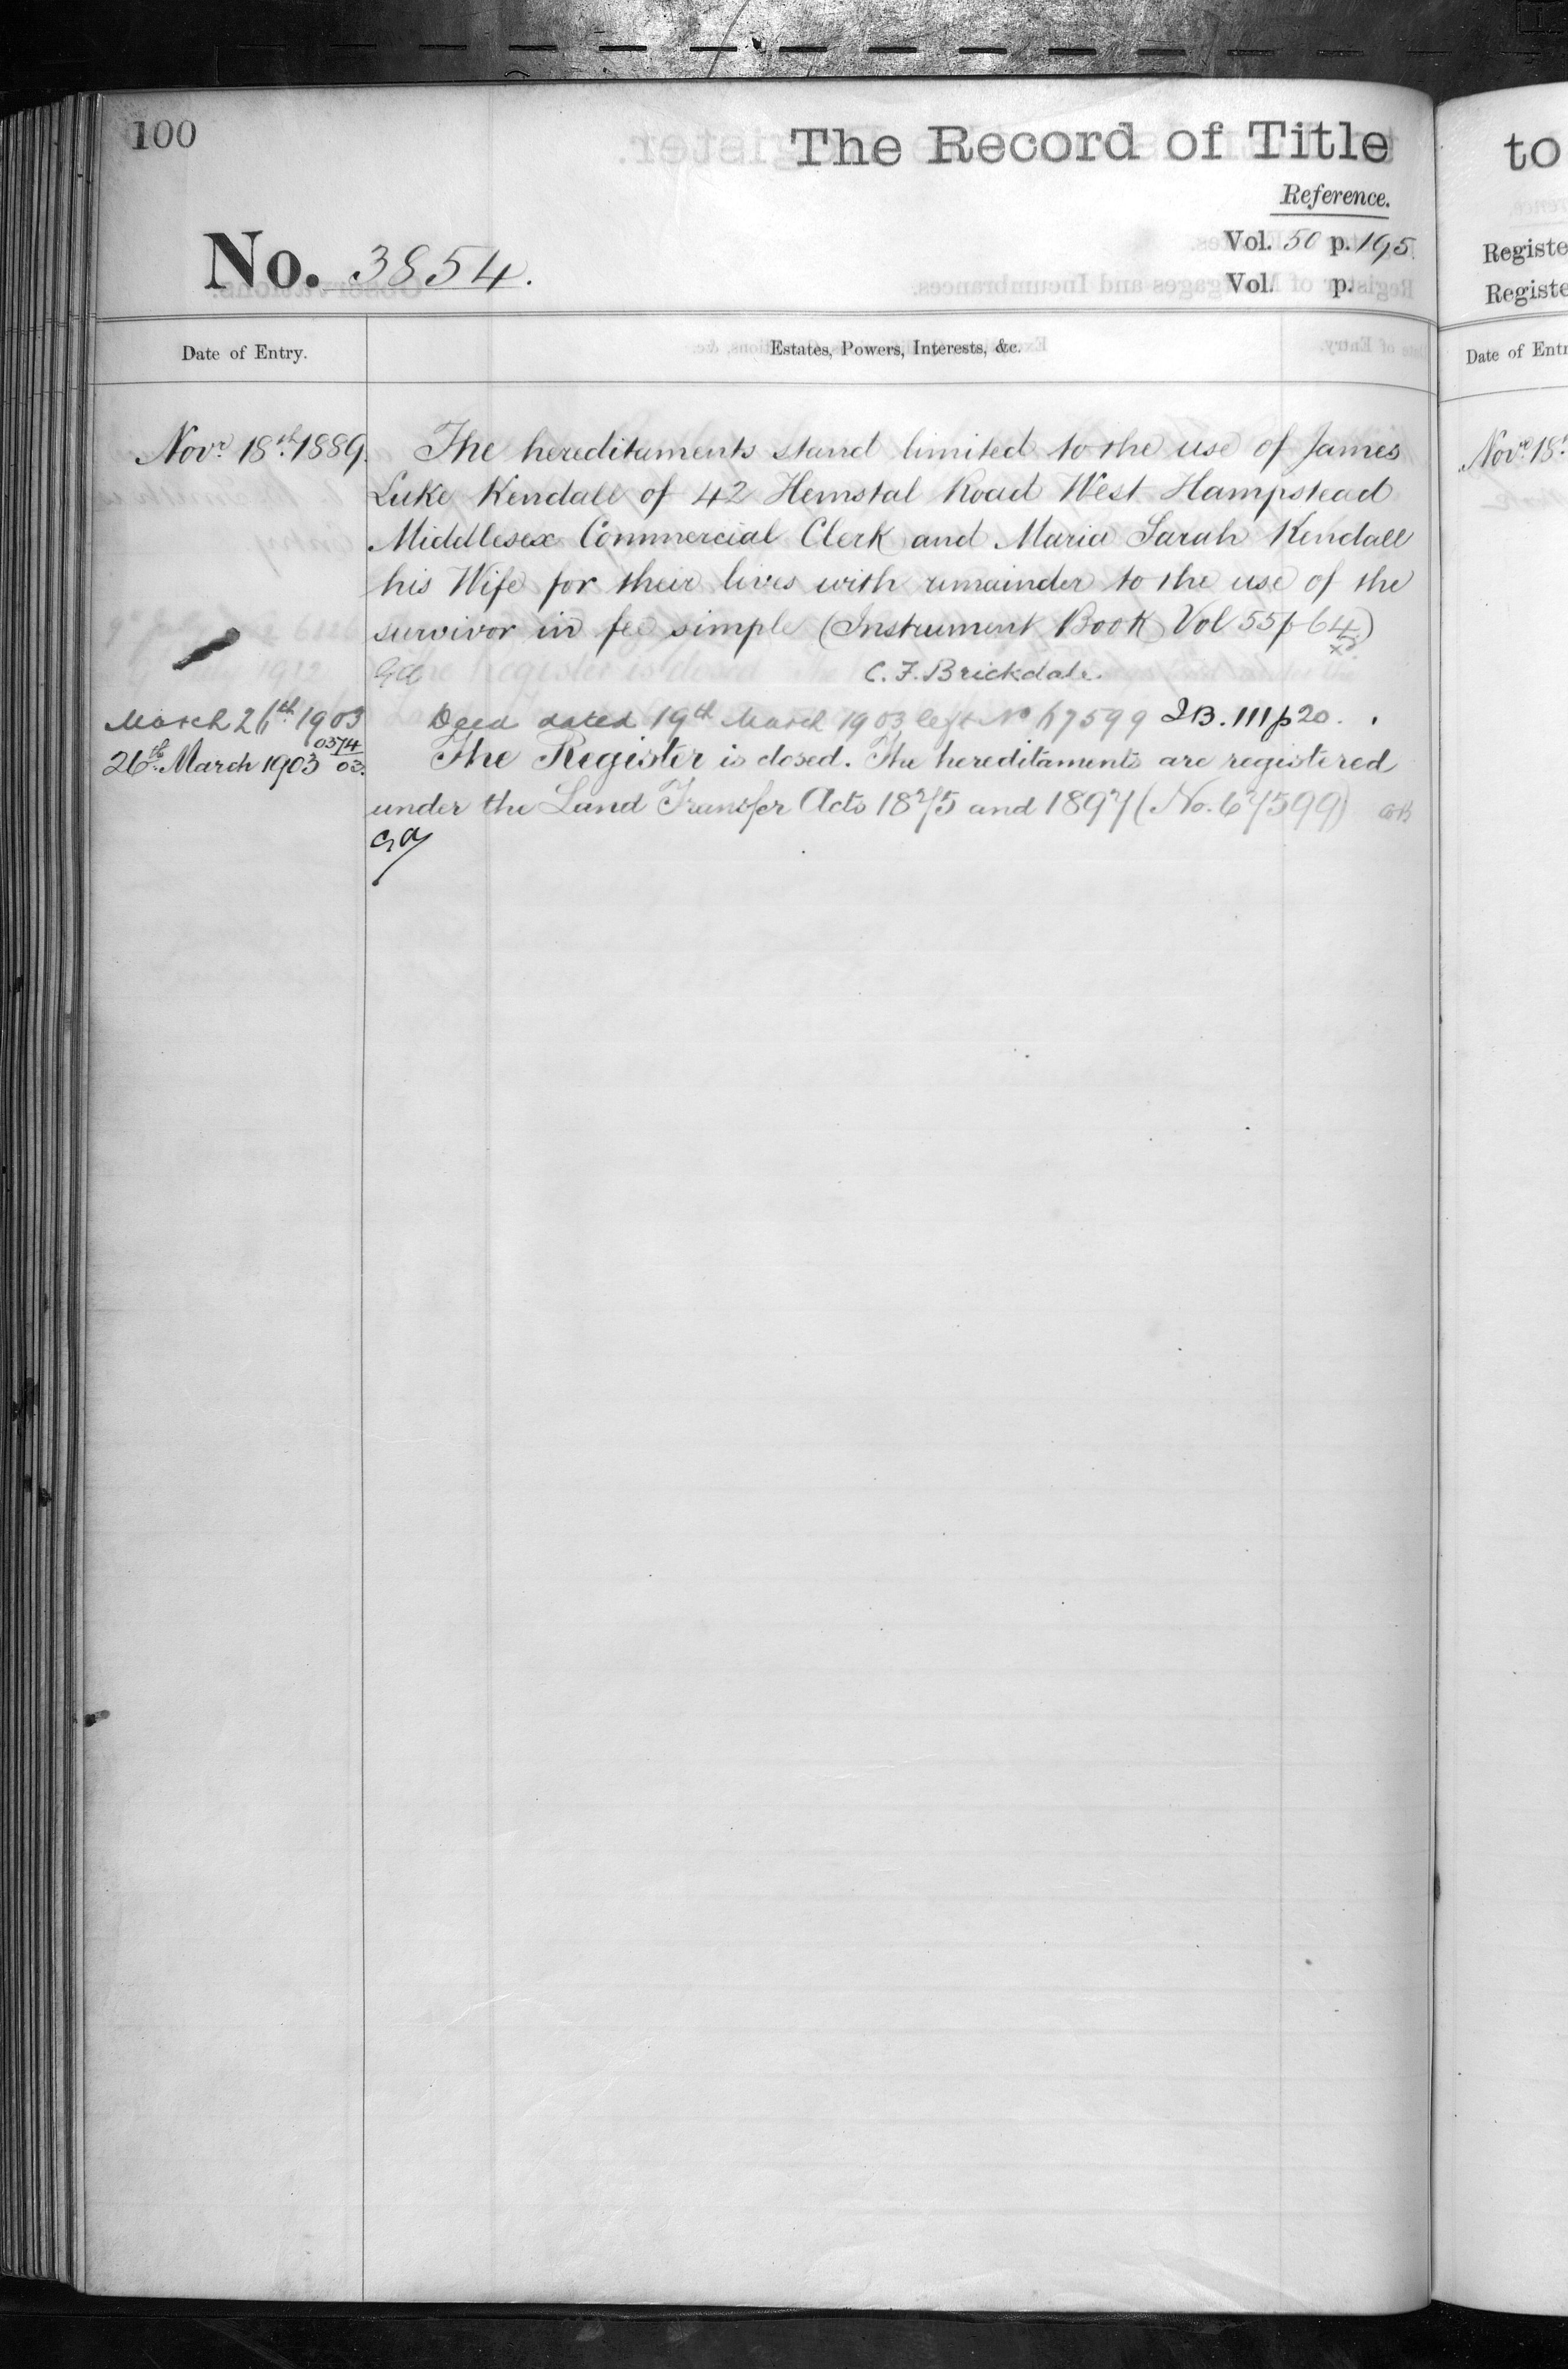 100
The Record of Title
Reference.
No. 3854.
Vol. 50 p. 195.
Vol. p.
Date of Entry.
Estates, Powers, Interests, &c.
Novr. 18th. 1889.
The hereditaments stand limited to the use of James
Luke Kendall of 42 Hemstal Road West Hampstead
Middlesex Commercial Clerk and Maria Sarah Kendall
his Wife for their lives with remainder to the use of the
survivor in fee simple (Instrument Book Vol 55 p 64)
C. F. Brickdale.
March 26th. 1903
Deed dated 19th March 1903 left No 67599 I B. 111 p 20.
26th. March 1903 0374/03.
The Register is closed. The hereditaments are registered
under the Land Transfer Acts 1875 and 1897 (No. 67599)
to
Registe
Registe
Date of Entr
Novr. 18